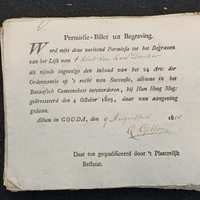 Permissie-Billet tot Begraving.
Word mits deze verleend Permissie tot het Begraven
van het Lijk van 't Kind van
als zijnde ingevolge den inhoud van het 24 Art: der
Ordonnantie op 't regt van Successie, alomme in het
Bataafsch Gemeenebest intevoeren, bij Hun Hoog Mog:
gearresteerd den 4 October 1805, daar van aangeving
gedaan.
Actum in GOUDA, den 9 Augustus
Daar toe gequalificeerd door 't Plaatselijk
Bestuur.